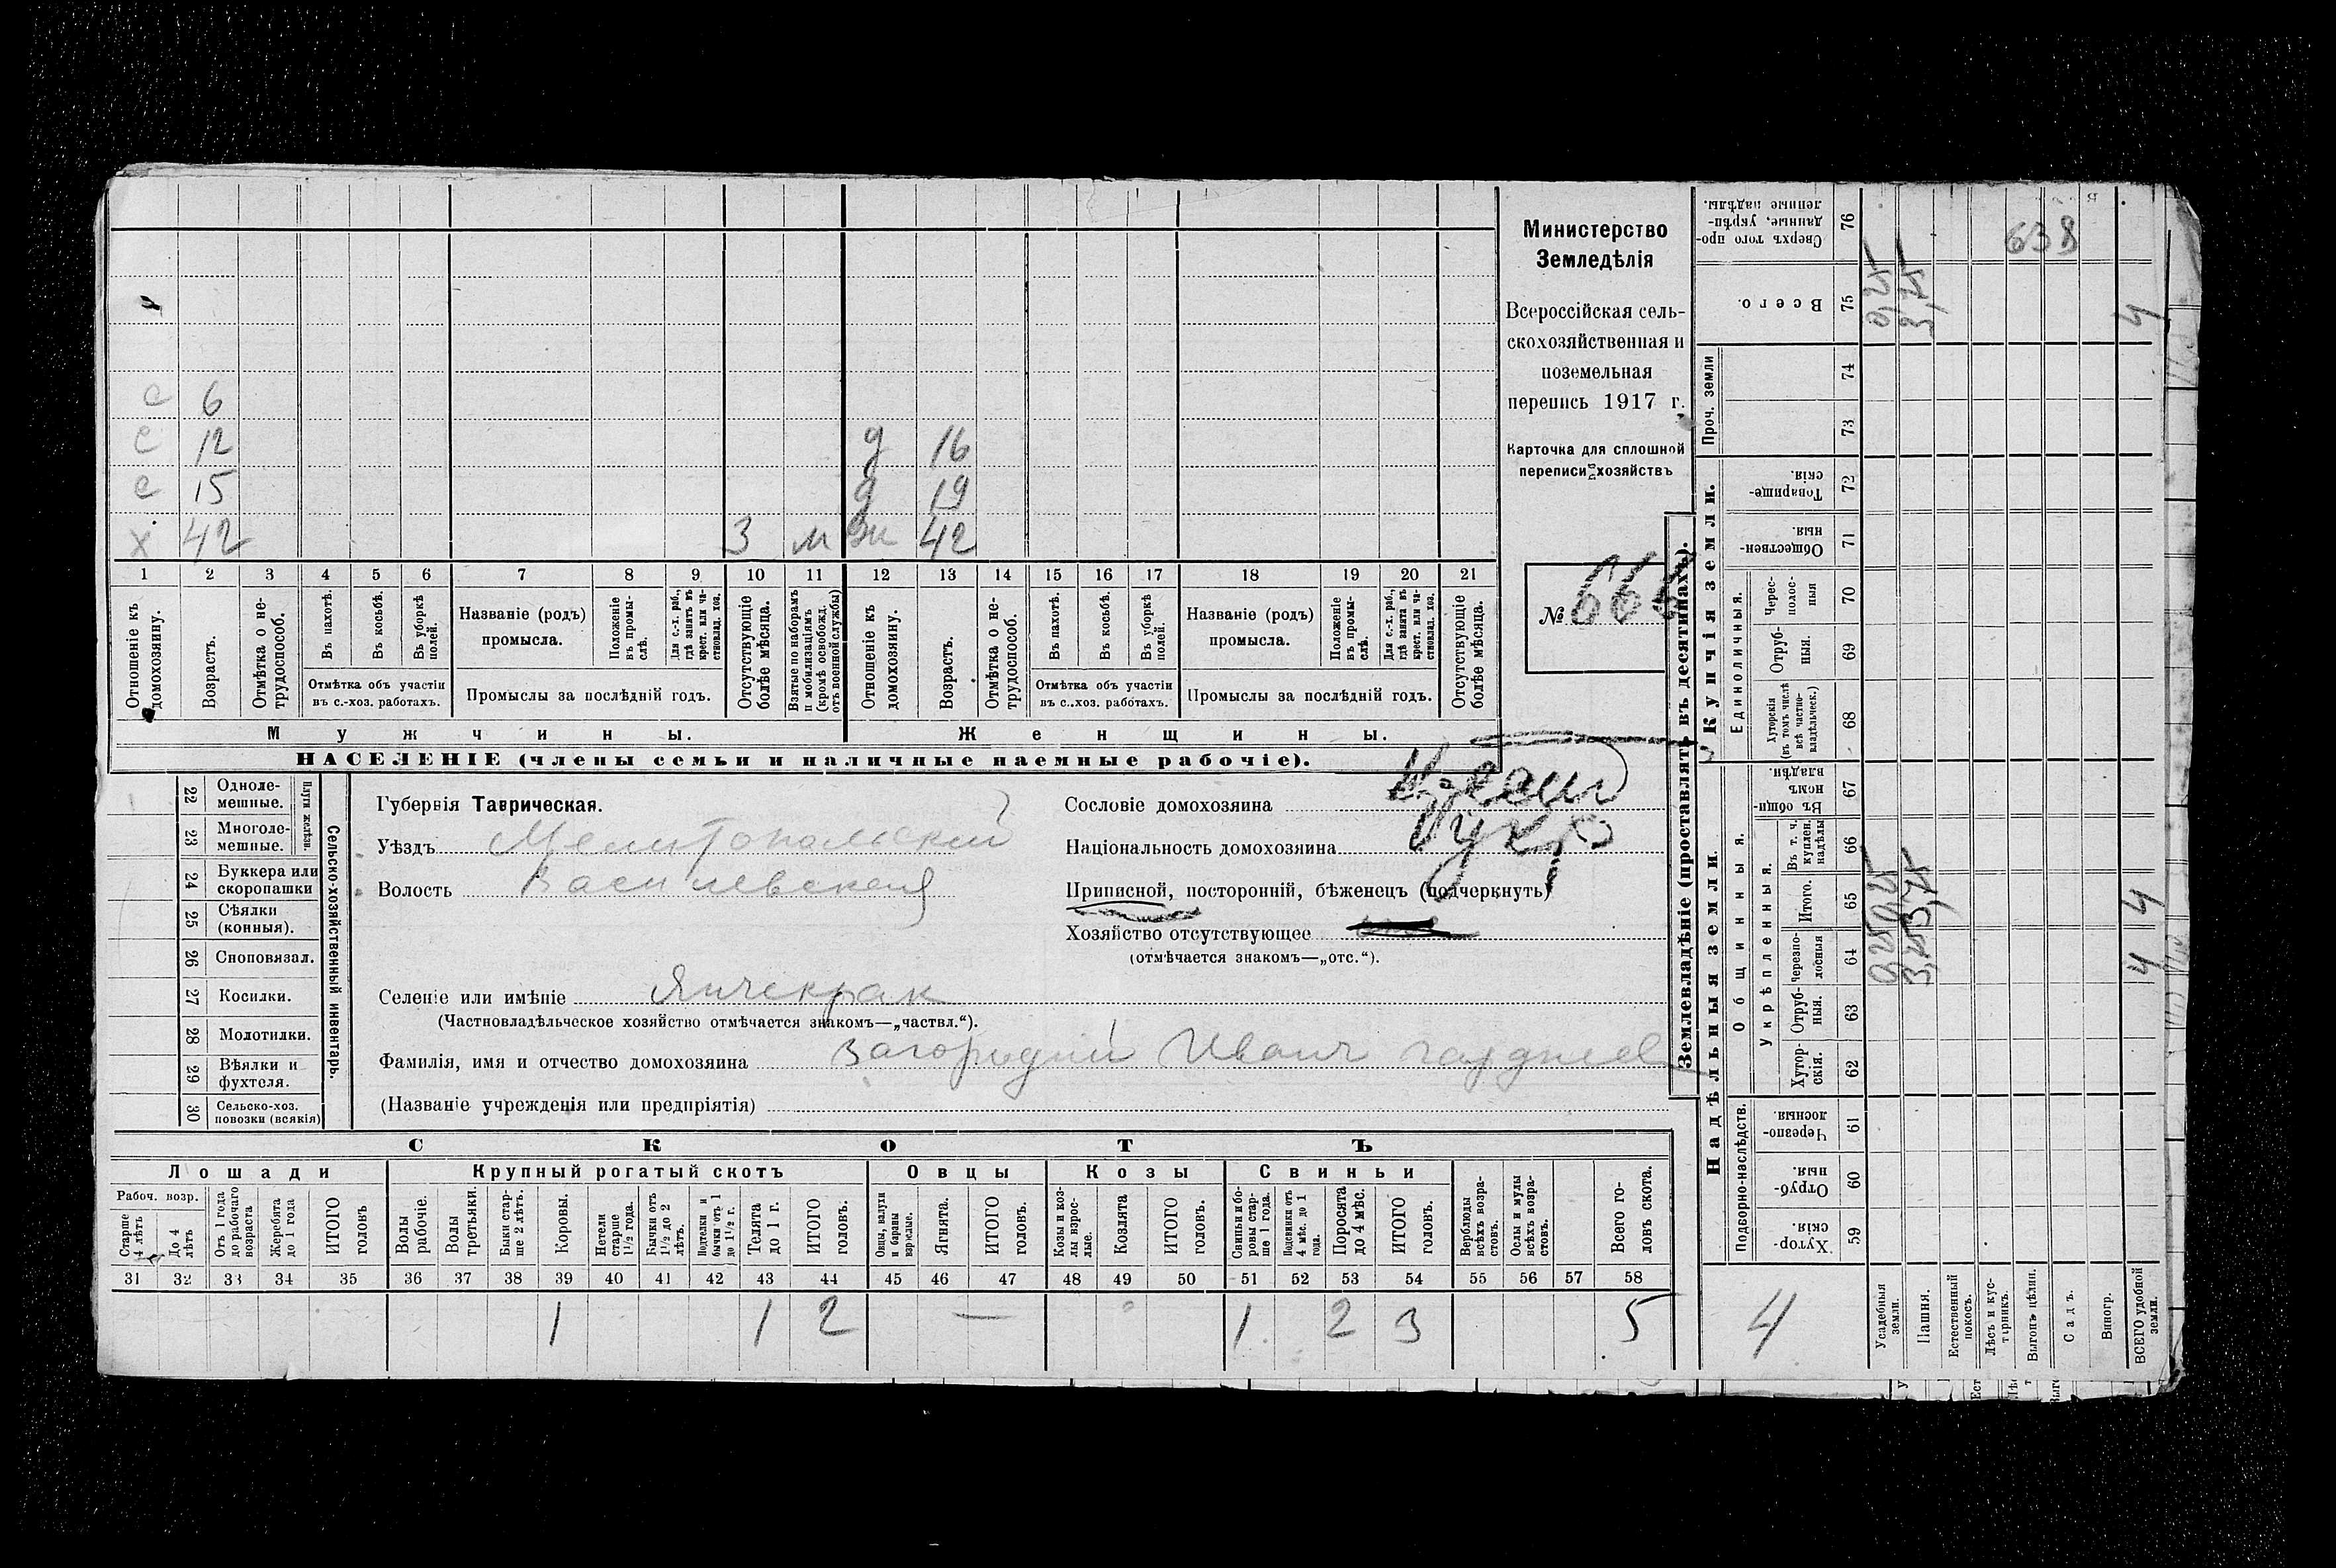 с 6
с 12 д 16
с 15 д 19
х 42 3 м ж 42
1 2 3 4 5 6 7 8 9 10 11 12 13 14 15 16 17 18 19 20 21
Отношеніе къ домохозяину.
Возрастъ.
Отмѣтка о нетрудоспособ.
Въ пахотѣ.
Въ косьбѣ.
Въ уборкѣ полей.
Отмѣтка объ участіи въ с.-хоз. работахъ.
Названіе (родъ) промысла.
Положеніе въ промыслѣ.
Для с.-х. раб., гдѣ занятъ въ крест. или частновлад. хоз.
Промыслы за послѣдній годъ.
Отсутствующіе болѣе мѣсяца.
Взятые по наборамъ и мобилизаціямъ (кромѣ освобожд. отъ военной службы)
Отношеніе къ домохозяину.
Возрастъ.
Отмѣтка о нетрудоспособ.
Въ пахотѣ.
Въ косьбѣ.
Въ уборкѣ полей.
Отмѣтка объ участіи въ с.-хоз. работахъ.
Названіе (родъ) промысла.
Положеніе въ промыслѣ.
Для с.-х. раб., гдѣ занятъ въ крест. или частновлад. хоз.
Промыслы за послѣдній годъ.
Отсутствующіе болѣе мѣсяца.
Мужчины. Женщины.
НАСЕЛЕНІЕ (члены семьи и наличные наемные рабочіе).
Министерство
Земледѣлія
Всероссійская сель-
скохозяйственная и
поземельная
перепись 1917 г.
Карточка для сплошной
переписи хозяйствъ
№
22 Одноле-
мешные.
23 Многоле-
мешные.
Плуги желѣзн.
24 Буккера или
скоропашки
25 Сѣялки
(конныя).
26 Сноповязал.
27 Косилки.
28 Молотилки.
29 Вѣялки и
фухтеля.
30 Сельско-хоз.
повозки (всякія)
Сельско-хозяйственный инвентарь.
Губернія Таврическая.
Уѣздъ Мелитопольскій
Волость Васильевская
Селеніе или имѣніе Янчекрак
(Частновладѣльческое хозяйство отмѣчается знакомъ—„частвл.“).
Фамилія, имя и отчество домохозяина Загородній Иван
(Названіе учрежденія или предпріятія)
Сословіе домохозяина
Національность домохозяина
Приписной, посторонній, бѣженецъ (подчеркнуть)
Хозяйство отсутствующее
(отмѣчается знакомъ—„отс.“).
СКОТЪ
Лошади Крупный рогатый скотъ Овцы Козы Свиньи
Рабоч. возр.
Старше 4 лѣтъ
До 4 лѣтъ
Отъ 1 года до рабочаго возраста
Жеребята до 1 года
ИТОГО головъ
Волы рабочіе.
Волы третьяки.
Быки старше 2 лѣтъ.
Коровы.
Нетели старше 1½ года.
Бычки отъ 1½ до 2 лѣтъ.
Подтелки и бычки отъ 1 до 1½ г.
Телята до 1 г.
ИТОГО головъ.
Овцы, валухи и бараны взрослые.
Ягнята.
ИТОГО головъ.
Козы и козлы взрослые.
Козлята
ИТОГО головъ.
Свиньи и боровы старше 1 года.
Подсвинки отъ 4 мѣс. до 1 года.
Поросята до 4 мѣс.
ИТОГО головъ.
Верблюды всѣхъ возрастовъ.
Ослы и мулы всѣхъ возрастовъ.
Всего головъ скота.
31 32 33 34 35 36 37 38 39 40 41 42 43 44 45 46 47 48 49 50 51 52 53 54 55 56 57 58
1 1 2 — 1 2 3 5
Землевладѣніе (проставлять въ десятинахъ).
Купчія земли.
Надѣльныя земли.
Сверхъ того проданные, укрѣпленные надѣлы. 76
Всего. 75 0,25 3,75 4
638
Проч. земли 74 73
Товарищескія. 72
Общественныя. 71
Единоличныя.
Чересполосныя 70
Отрубныя. 69
Хуторскія (въ томъ числѣ всѣ частновладѣльческ.) 68
Общинныя.
Въ общинномъ владѣн. 67
Укрѣпленныя.
Въ т. ч. куплен. надѣлы 66
Итого. 65 0,25 3,75 4
черезполосныя 64 0,25 3,75 4
Отрубныя. 63
Хуторскія. 62
Подворно-наслѣдств.
Черезполосныя 61
Отрубныя. 60
Хуторскія. 59
4
Усадебныя земли.
Пашня.
Естественный покосъ.
Лѣсъ и кустарникъ.
Выгонъ цѣлин.
Садъ.
Виногр.
ВСЕГО удобной земли.